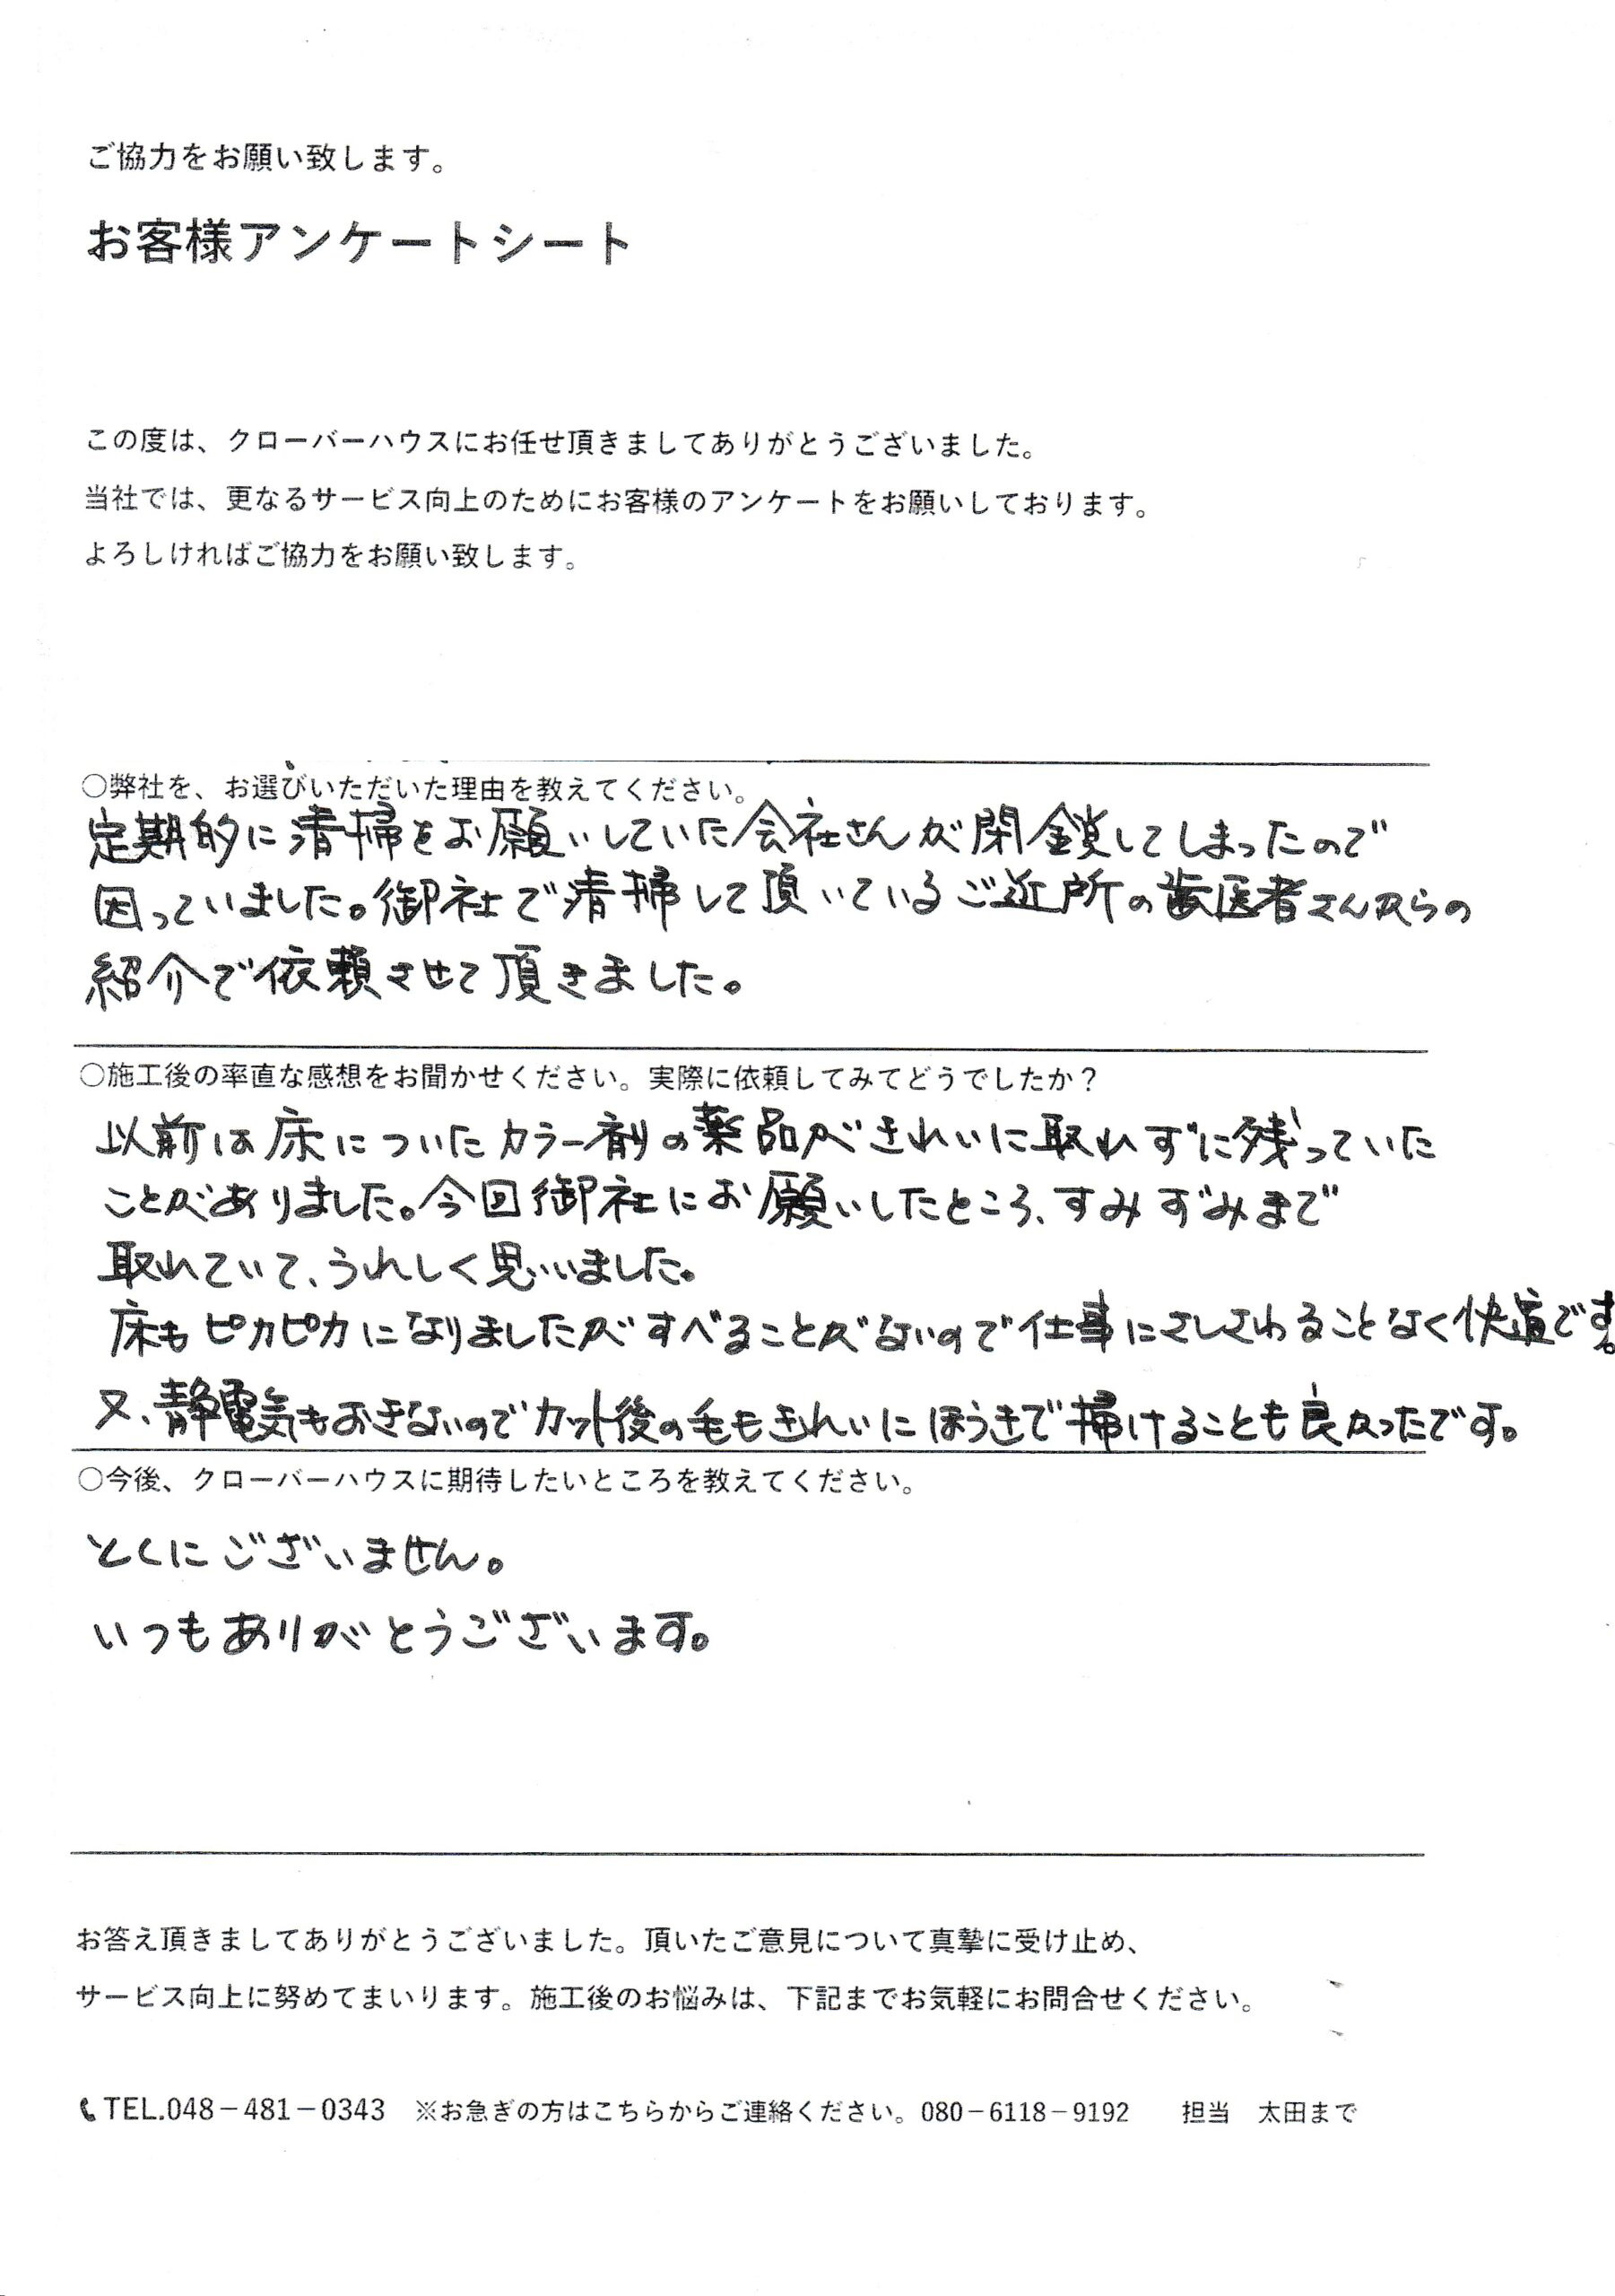 ご協力をお願い致します。
お客様アンケートシート
この度は、クローバーハウスにお任せ頂きましてありがとうございました。
当社では、更なるサービス向上のためにお客様のアンケートをお願いしております。
よろしければご協力をお願い致します。
○弊社を、お選びいただいた理由を教えてください。
定期的に清掃をお願いしていた会社さんが閉鎖してしまったので
困っていました。御社で清掃して頂いているご近所の歯医者さんからの
紹介で依頼させて頂きました。
○施工後の率直な感想をお聞かせください。実際に依頼してみてどうでしたか？
以前は床についたカラー剤の薬品がきれいに取れずに残っていた
ことがありました。今回御社にお願いしたところ、すみずみまで
取れていて、うれしく思いました。
床もピカピカになりましたがすべることがないので仕事にさしさわることなく快適です。
又、静電気もおきないのでカット後の毛もきれいにほうきで掃けることも良かったです。
○今後、クローバーハウスに期待したいところを教えてください。
とくにございません。
いつもありがとうございます。
お答え頂きましてありがとうございました。頂いたご意見について真摯に受け止め、
サービス向上に努めてまいります。施工後のお悩みは、下記までお気軽にお問合せください。
TEL.048－481－0343　※お急ぎの方はこちらからご連絡ください。080－6118－9192　担当　太田まで